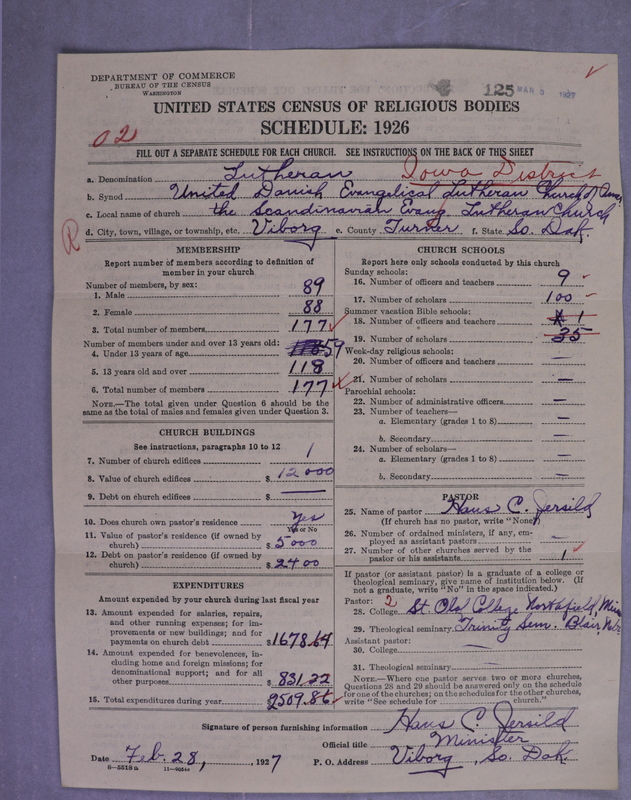 DEPARTMENT OF COMMERCE
BUREAU OF THE CENSUS
WASHINGTON
125 MAR 3 1927
UNITED STATES CENSUS OF RELIGIOUS BODIES
SCHEDULE: 1926
02
FILL OUT A SEPARATE SCHEDULE FOR EACH CHURCH. SEE INSTRUCTIONS ON THE BACK OF THIS SHEET
a. Denomination Lutheran Iowa District
b. Synod United Danish Evangelical Lutheran Church of Amer
c. Local name of church the Scandinavian Evang Lutheran Church
R
d. City, town, village, or township, etc. Viborg e. County Turner f. State So. Dak.
MEMBERSHIP
Report number of members according to definition of
member in your church
Number of members, by sex:
1. Male 89
2. Female 88
3. Total number of members 177
Number of members under and over 13 years old:
4. Under 13 years of age 59
5. 13 years old and over 118
6. Total number of members 177
NOTE.—The total given under Question 6 should be the
same as the total of males and females given under Question 3.
CHURCH BUILDINGS
See instructions, paragraphs 10 to 12
7. Number of church edifices 1
8. Value of church edifices $12000
9. Debt on church edifices $ —
10. Does church own pastor's residence Yes
Yes or No
11. Value of pastor's residence (if owned by
church) $5000
12. Debt on pastor's residence (if owned by
church) $2400
EXPENDITURES
Amount expended by your church during last fiscal year
13. Amount expended for salaries, repairs,
and other running expenses; for im-
provements or new buildings; and for
payments on church debt $1678.64
14. Amount expended for benevolences, in-
cluding home and foreign missions; for
denominational support; and for all
other purposes $831.22
15. Total expenditures during year 2509.86
CHURCH SCHOOLS
Report here only schools conducted by this church
Sunday schools:
16. Number of officers and teachers 9
17. Number of scholars 100
Summer vacation Bible schools:
18. Number of officers and teachers 1
19. Number of scholars 35
Week-day religious schools:
20. Number of officers and teachers —
21. Number of scholars —
Parochial schools:
22. Number of administrative officers —
23. Number of teachers—
a. Elementary (grades 1 to 8) —
b. Secondary —
24. Number of scholars—
a. Elementary (grades 1 to 8) —
b. Secondary —
PASTOR
25. Name of pastor Hans C. Jersild
(If church has no pastor, write "None")
26. Number of ordained ministers, if any, em-
ployed as assistant pastors —
27. Number of other churches served by the
pastor or his assistants 1
If pastor (or assistant pastor) is a graduate of a college or
theological seminary, give name of institution below. (If
not a graduate, write "No" in the space indicated.)
Pastor: 2
28. College St Olaf College Northfield, Minn
29. Theological seminary Trinity Sem. Blair, Nebr
Assistant pastor:
30. College —
31. Theological seminary —
NOTE.—Where one pastor serves two or more churches,
Questions 28 and 29 should be answered only on the schedule
for one of the churches; on the schedules for the other churches,
write "See schedule for church."
Signature of person furnishing information Hans C. Jersild
Official title Minister
Date Feb. 28, 1927 P. O. Address Viborg, So. Dak.
8—5518a